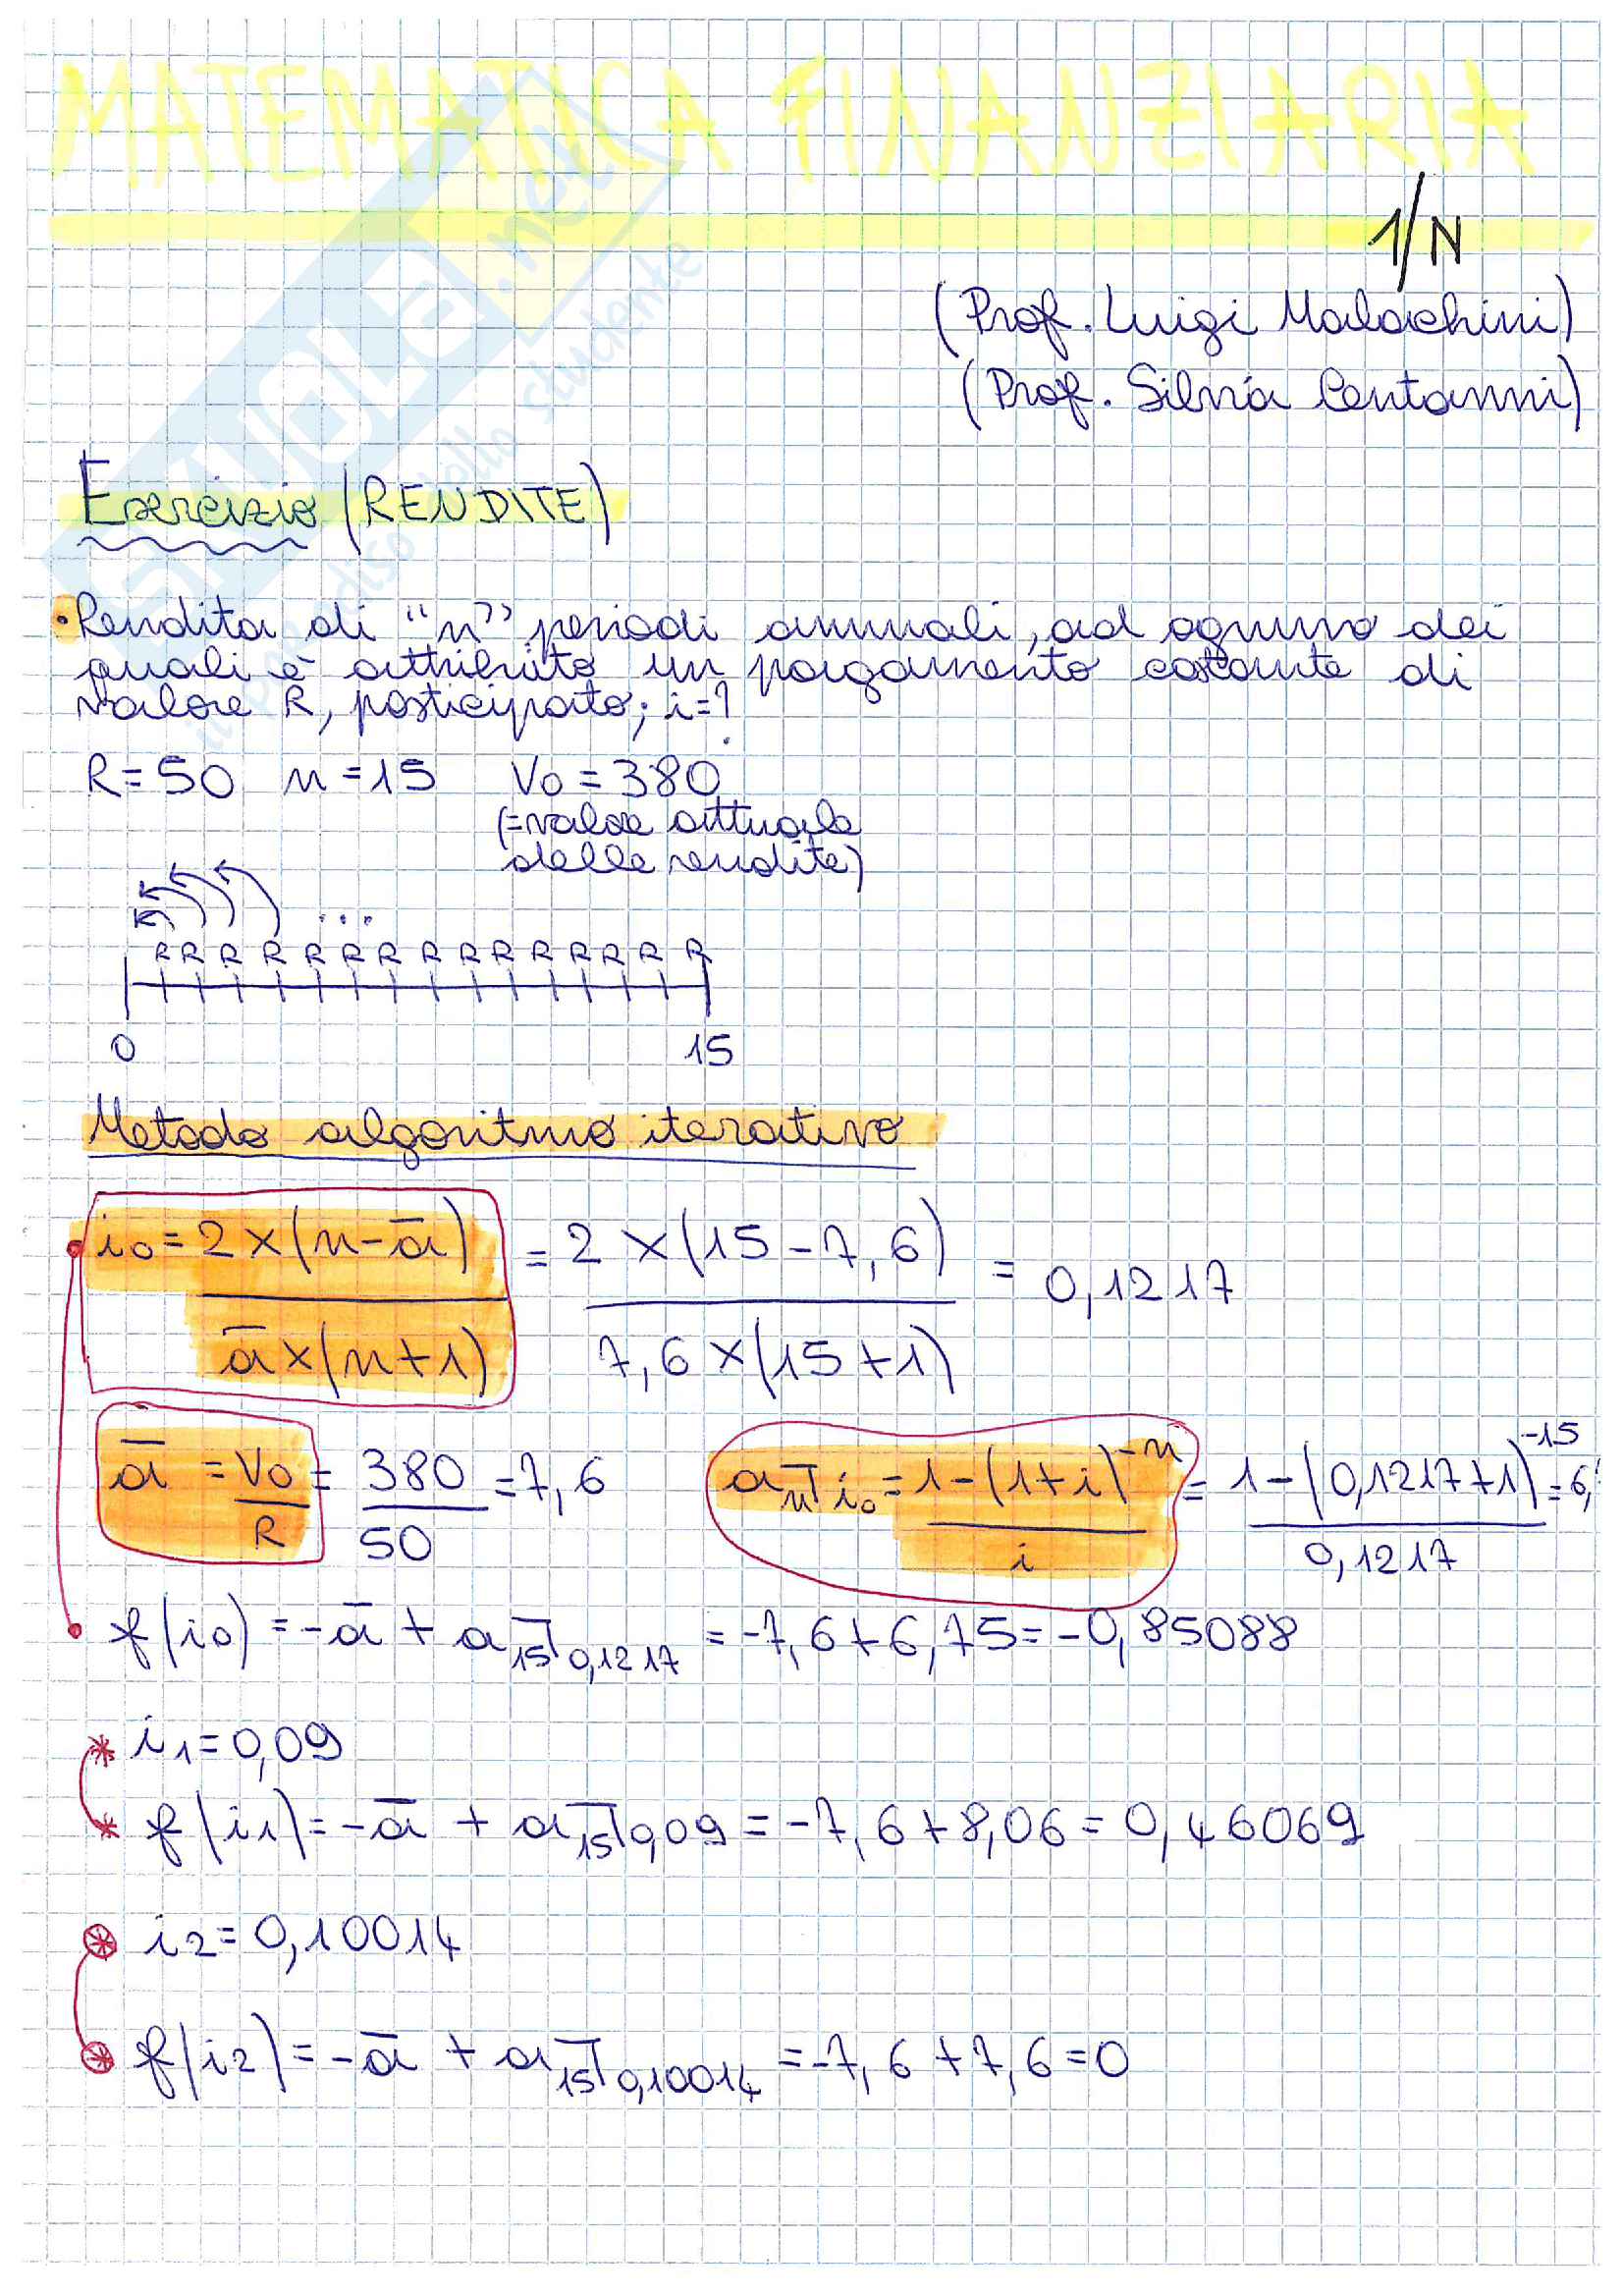 MATEMATICA FINANZIARIA
1/N
(Prof. Luigi Malachini)
(Prof. Silvia Centanni)
Esercizio (RENDITE)
• Rendita di "n" periodi annuali, ad ognuno dei
quali è attribuito un pagamento costante di
valore R, posticipato; i=?
R=50 n=15 V0=380
(=valore attuale
delle rendite)
...
R R R R R R R R R R R R R R R
0 15
Metodo algoritmo iterativo
i0 = 2×(n-ā) / ā×(n+1) = 2×(15-7,6) / 7,6×(15+1) = 0,1217
ā = V0/R = 380/50 = 7,6 a n̅| i0 = 1-(1+i)^-n / i = 1-(0,1217+1)^-15 / 0,1217 = 6,
f(i0) = -ā + a 15̅| 0,1217 = -7,6+6,75 = -0,85088
* i1=0,09
* f(i1) = -ā + a 15̅| 0,09 = -7,6+8,06 = 0,46069
⊛ i2=0,10014
⊛ f(i2) = -ā + a 15̅| 0,10014 = -7,6+7,6=0